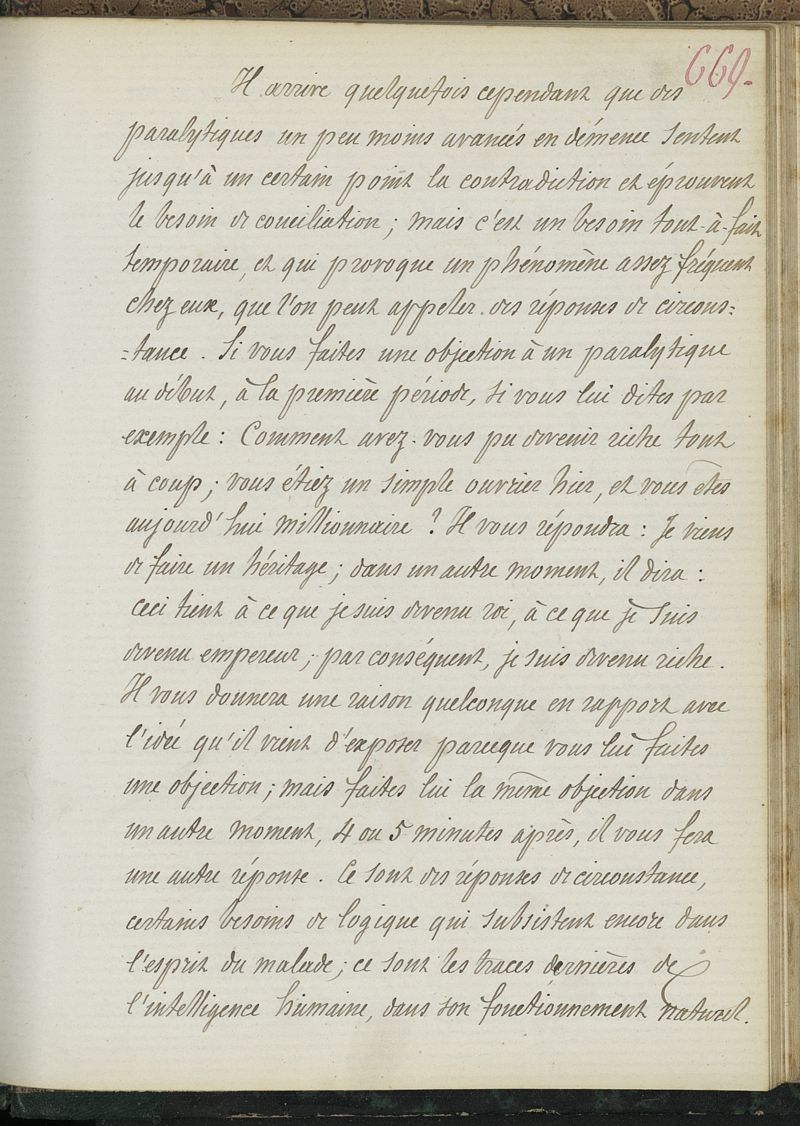 669.
Il arrive quelquefois cependant que des
paralytiques un peu moins avancés en démence sentent
jusqu'à un certain point la contradiction et éprouvent
le besoin de conciliation ; mais c'est un besoin tout-à-fait
temporaire, et qui provoque un phénomène assez fréquent
chez eux, que l'on peut appeler des réponses de circons=
=tance. Si vous faites une objection à un paralytique
au début, à la première période, si vous lui dites par
exemple : Comment avez-vous pu devenir riche tout
à coup ; vous étiez un simple ouvrier hier, et vous êtes
aujourd'hui millionnaire ? Il vous répondra : Je viens
de faire un héritage ; dans un autre moment, il dira :
ceci tient à ce que je suis devenu roi, à ce que je suis
devenu empereur ; par conséquent, je suis devenu riche.
Il vous donnera une raison quelconque en rapport avec
l'idée qu'il vient d'exposer parceque vous lui faites
une objection ; mais faites lui la même objection dans
un autre moment, 4 ou 5 minutes après, il vous fera
une autre réponse. Ce sont des réponses de circonstance,
certains besoins de logique qui subsistent encore dans
l'esprit du malade ; ce sont les traces dernières de
l'intelligence humaine, dans son fonctionnement naturel.